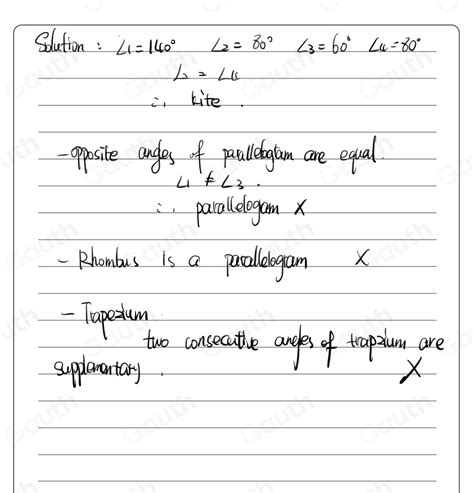 Solution : ∠1=140° ∠2=80° ∠3=60° ∠4=80°
∠2 = ∠4
∴ kite.
- opposite angles of parallelogram are equal.
∠1 ≠ ∠3.
∴ parallelogram X
- Rhombus is a parallelogram X
- Trapezium
two consecutive angles of trapzium are
supplementary. X